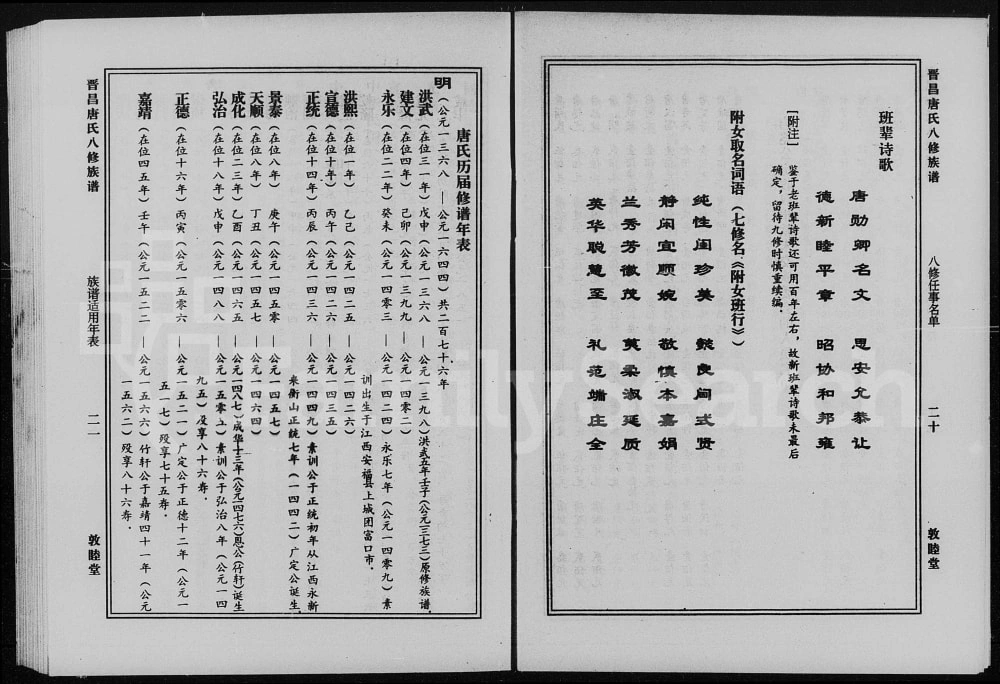 晋昌唐氏八修族谱
八修任事名单
二十
敦睦堂
班辈诗歌
唐勋卿名文 思安允恭让
德新睦平章 昭协和邦雍
[附注] 鉴于老班辈诗歌还可用百年左右，故新班辈诗歌未最后
确定，留待九修时慎重续编．
附女取名词语（七修名《附女班行》）
纯性闺珍美 懿良阃式贤
静闲宜顺婉 敬慎本嘉娟
兰秀芳徽茂 荑柔淑延质
英华聪慧至 礼范端庄全
唐氏历届修谱年表
明（公元一三六八——公元一六四四）共二百七十六年
洪武（在位三一年）戊申（公元一三六八——公元一三九八）洪武五年壬子（公元一三七三）原修族谱．
建文（在位四年）己卯（公元一三九九——公元一四〇二）
永乐（在位二二年）癸未（公元一四零三——公元一四二四）永乐七年（公元一四零九）素
训出生于江西安福县上城团富口市．
洪熙（在位一年）乙己（公元一四二五——公元一四二六）
宣德（在位十年）丙午（公元一四二六——公元一四三五）
正统（在位十四年）丙辰（公元一四三六——公元一四四九）素训公于正统初年从江西永新
来衡山正统七年（一四四二）广定公诞生．
景泰（在位八年）庚午（公元一四五〇——公元一四五七）
天顺（在位八年）丁丑（公元一四五七——公元一四六四）
成化（在位二三年）乙酉（公元一四六五——公元一四八七）成华十三年（公元一四七六）思公（竹轩）诞生
弘治（在位十八年）戊申（公元一四八八——公元一五零五）素训公于弘治八年（公元一四
九五）殁享八十六寿．
正德（在位十六年）丙寅（公元一五零六——公元一五二一）广定公于正德十二年（公元一
五一七）殁享七十五寿．
嘉靖（在位四五年）壬午（公元一五二二——公元一五六六）竹轩公于嘉靖四十一年（公元
一五六二）殁享八十六寿．
晋昌唐氏八修族谱
族谱适用年表
二一
敦睦堂